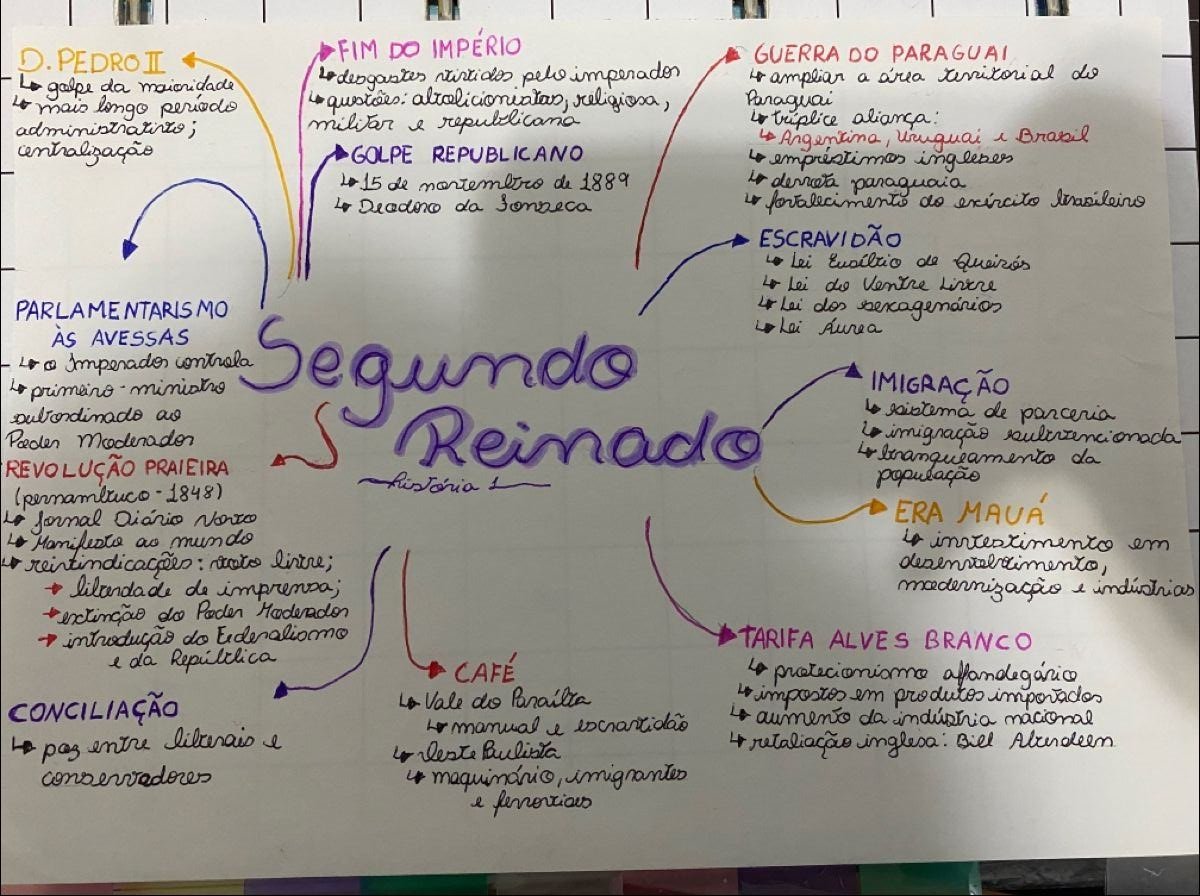 Segundo
Reinado
história 1
D. PEDRO II
↳ golpe da maioridade
↳ mais longo período
administrativo;
centralização
FIM DO IMPÉRIO
↳ desgastes vividos pelo imperador
↳ questões: abolicionistas, religiosa,
militar e republicana
GOLPE REPUBLICANO
↳ 15 de novembro de 1889
↳ Deodoro da Fonseca
GUERRA DO PARAGUAI
↳ ampliar a área territorial do
Paraguai
↳ tríplice aliança:
↳ Argentina, Uruguai e Brasil
↳ empréstimos ingleses
↳ derrota paraguaia
↳ fortalecimento do exército brasileiro
ESCRAVIDÃO
↳ Lei Eusébio de Queirós
↳ Lei do Ventre Livre
↳ Lei dos sexagenários
↳ Lei Áurea
IMIGRAÇÃO
↳ sistema de parceria
↳ imigração subvencionada
↳ branqueamento da
população
ERA MAUÁ
↳ investimento em
desenvolvimento,
modernização e indústrias
TARIFA ALVES BRANCO
↳ protecionismo alfandegário
↳ impostos em produtos importados
↳ aumento da indústria nacional
↳ retaliação inglesa: Bill Aberdeen
CAFÉ
↳ Vale do Paraíba
↳ manual e escravidão
↳ Oeste Paulista
↳ maquinário, imigrantes
e ferrovias
CONCILIAÇÃO
↳ paz entre liberais e
conservadores
REVOLUÇÃO PRAIEIRA
(pernambuco - 1848)
↳ Jornal Diário Novo
↳ Manifesto ao mundo
↳ reivindicações: voto livre;
→ liberdade de imprensa;
→ extinção do Poder Moderador
→ introdução do Federalismo
e da República
PARLAMENTARISMO
ÀS AVESSAS
↳ o Imperador controla
↳ primeiro-ministro
subordinado ao
Poder Moderador